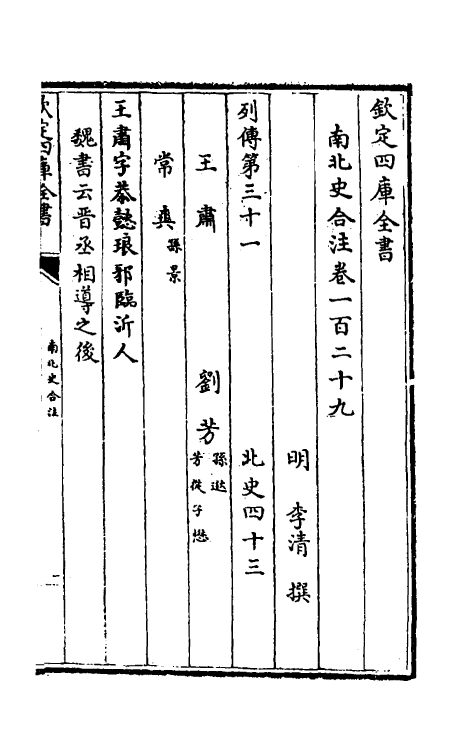 欽定四庫全書
南北史合注卷一百二十九
明 李清 撰
列傳第三十一 北史四十三
王肅 劉芳 孫逖 芳從子懋
常爽 孫景
王肅字恭懿琅邪臨沂人
魏書云晉丞相導之後
欽定四庫全書
南北史合注
一